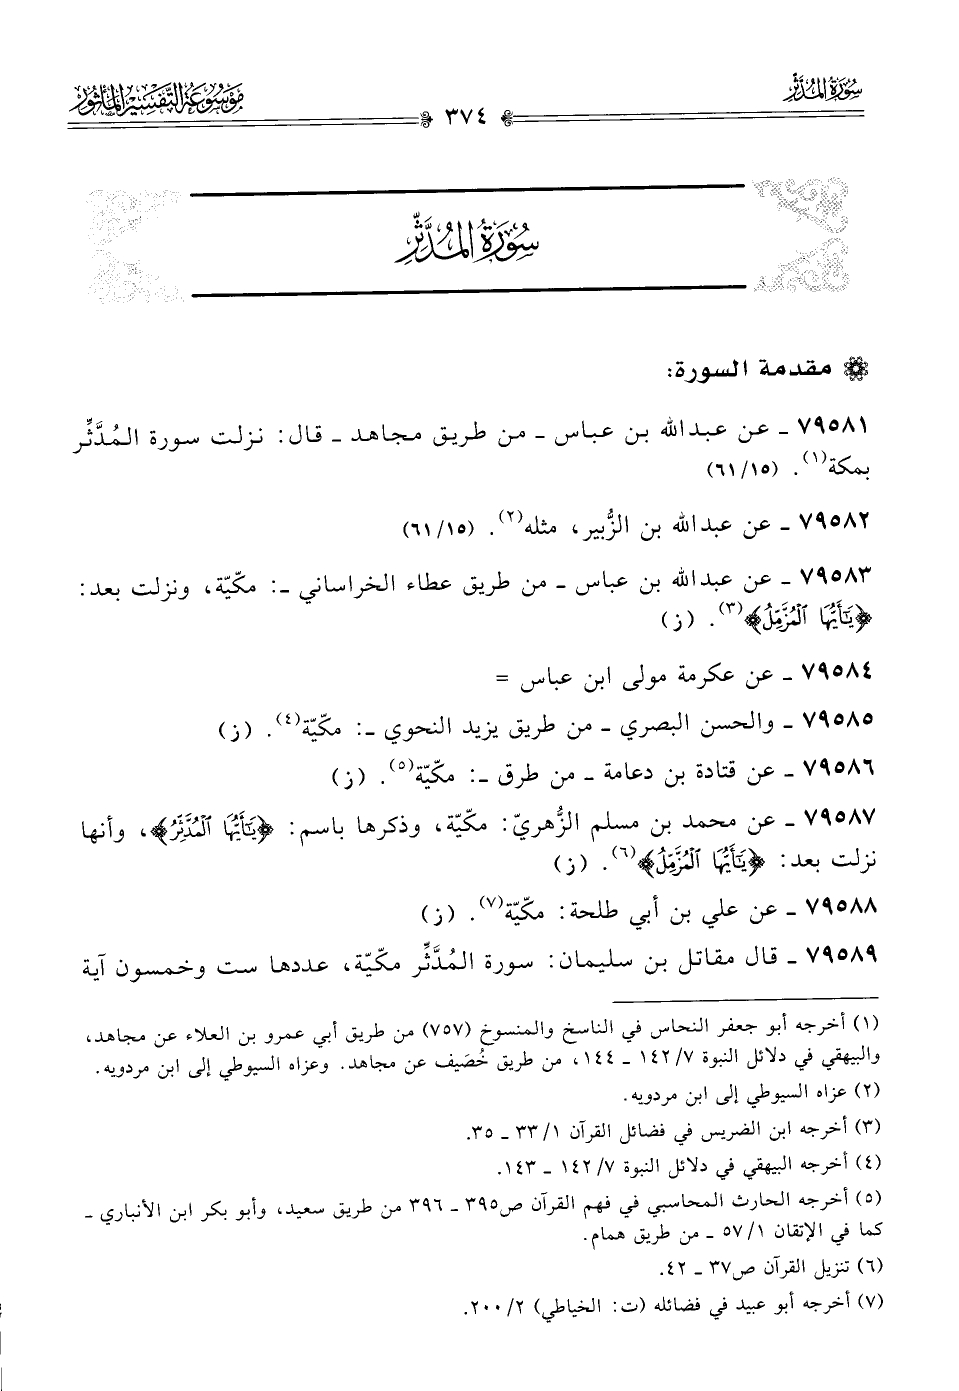 سُورَةُ المُدَّثِّرِ
موسوعة التفسير المأثور
٣٧٤
سُورَةُ المُدَّثِّرِ
مقدمة السورة:
٧٩٥٨١ ـ عن عبدالله بن عباس ـ من طريق مجاهد ـ قال: نزلت سورة المُدَّثِّر
بمكة(١). (٦١/١٥)
٧٩٥٨٢ ـ عن عبدالله بن الزُّبير، مثله(٢). (٦١/١٥)
٧٩٥٨٣ ـ عن عبدالله بن عباس ـ من طريق عطاء الخراساني ـ: مكيّة، ونزلت بعد:
﴿يَٰٓأَيُّهَا ٱلْمُزَّمِّلُ﴾(٣). (ز)
٧٩٥٨٤ ـ عن عكرمة مولى ابن عباس =
٧٩٥٨٥ ـ والحسن البصري ـ من طريق يزيد النحوي ـ: مكيّة(٤). (ز)
٧٩٥٨٦ ـ عن قتادة بن دعامة ـ من طرق ـ: مكيّة(٥). (ز)
٧٩٥٨٧ ـ عن محمد بن مسلم الزُّهريّ: مكيّة، وذكرها باسم: ﴿يَٰٓأَيُّهَا ٱلْمُدَّثِّرُ﴾، وأنها
نزلت بعد: ﴿يَٰٓأَيُّهَا ٱلْمُزَّمِّلُ﴾(٦). (ز)
٧٩٥٨٨ ـ عن علي بن أبي طلحة: مكيّة(٧). (ز)
٧٩٥٨٩ ـ قال مقاتل بن سليمان: سورة المُدَّثِّر مكيّة، عددها ست وخمسون آية
(١) أخرجه أبو جعفر النحاس في الناسخ والمنسوخ (٧٥٧) من طريق أبي عمرو بن العلاء عن مجاهد،
والبيهقي في دلائل النبوة ١٤٢/٧ ـ ١٤٤، من طريق خُصَيف عن مجاهد. وعزاه السيوطي إلى ابن مردويه.
(٢) عزاه السيوطي إلى ابن مردويه.
(٣) أخرجه ابن الضريس في فضائل القرآن ٣٣/١ ـ ٣٥.
(٤) أخرجه البيهقي في دلائل النبوة ١٤٢/٧ ـ ١٤٣.
(٥) أخرجه الحارث المحاسبي في فهم القرآن ص٣٩٥ ـ ٣٩٦ من طريق سعيد، وأبو بكر ابن الأنباري ـ
كما في الإتقان ٥٧/١ ـ من طريق همام.
(٦) تنزيل القرآن ص٣٧ ـ ٤٢.
(٧) أخرجه أبو عبيد في فضائله (ت: الخياطي) ٢٠٠/٢.